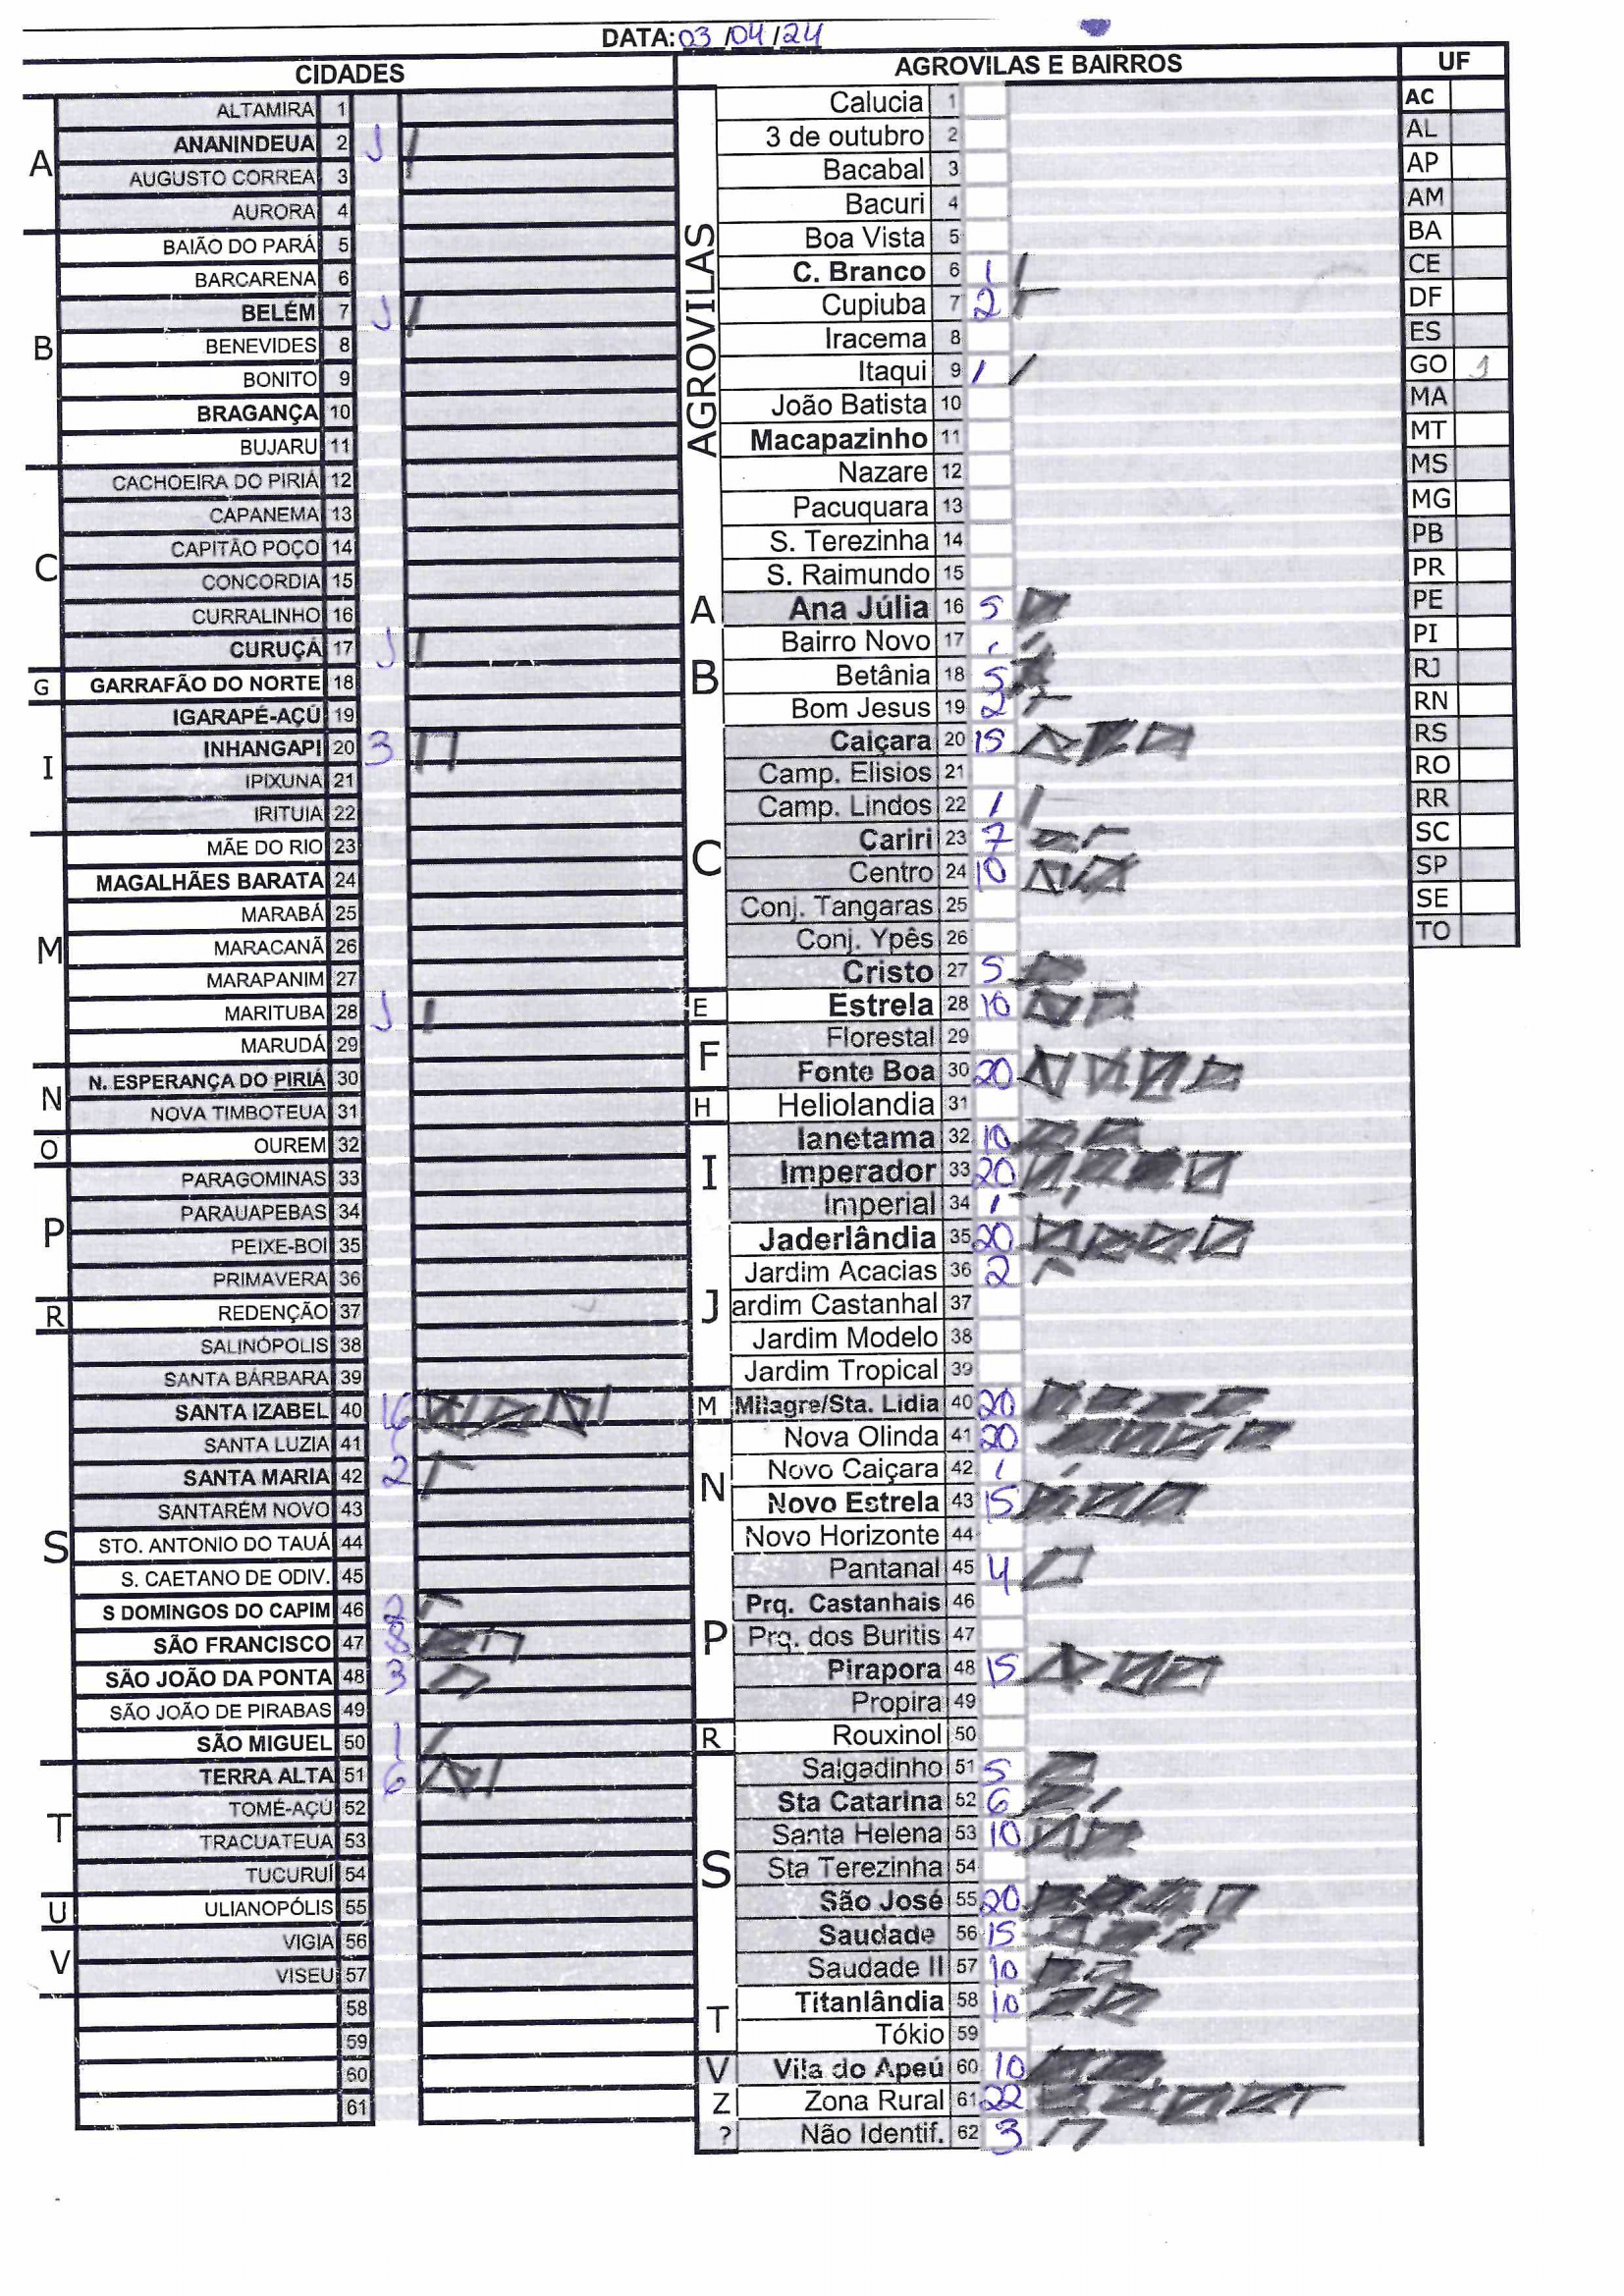 DATA: 03/04/24
CIDADES
A
ALTAMIRA 1
ANANINDEUA 2 1
AUGUSTO CORREA 3
AURORA 4
B
BAIÃO DO PARÁ 5
BARCARENA 6
BELÉM 7 1
BENEVIDES 8
BONITO 9
BRAGANÇA 10
BUJARU 11
C
CACHOEIRA DO PIRIÁ 12
CAPANEMA 13
CAPITÃO POÇO 14
CONCORDIA 15
CURRALINHO 16
CURUÇÁ 17 1
G
GARRAFÃO DO NORTE 18
I
IGARAPÉ-AÇÚ 19
INHANGAPI 20 3
IPIXUNA 21
IRITUIA 22
M
MÃE DO RIO 23
MAGALHÃES BARATA 24
MARABÁ 25
MARACANÃ 26
MARAPANIM 27
MARITUBA 28 1
MARUDÁ 29
N
N. ESPERANÇA DO PIRIÁ 30
NOVA TIMBOTEUA 31
O
OUREM 32
P
PARAGOMINAS 33
PARAUAPEBAS 34
PEIXE-BOI 35
PRIMAVERA 36
R
REDENÇÃO 37
S
SALINÓPOLIS 38
SANTA BÁRBARA 39
SANTA IZABEL 40 16
SANTA LUZIA 41
SANTA MARIA 42 2
SANTARÉM NOVO 43
STO. ANTONIO DO TAUÁ 44
S. CAETANO DE ODIV. 45
S DOMINGOS DO CAPIM 46 2
SÃO FRANCISCO 47 8
SÃO JOÃO DA PONTA 48 3
SÃO JOÃO DE PIRABAS 49
SÃO MIGUEL 50 1
T
TERRA ALTA 51 6
TOMÉ-AÇÚ 52
TRACUATEUA 53
TUCURUÍ 54
U
ULIANOPÓLIS 55
V
VIGIA 56
VISEU 57
58
59
60
61
AGROVILAS E BAIRROS
AGROVILAS
Calucia 1
3 de outubro 2
Bacabal 3
Bacuri 4
Boa Vista 5
C. Branco 6 1
Cupiuba 7 2
Iracema 8
Itaqui 9 1
João Batista 10
Macapazinho 11
Nazare 12
Pacuquara 13
S. Terezinha 14
S. Raimundo 15
A
Ana Júlia 16 5
B
Bairro Novo 17 1
Betânia 18 5
Bom Jesus 19 2
C
Caiçara 20 15
Camp. Elisios 21
Camp. Lindos 22 1
Cariri 23 7
Centro 24 10
Conj. Tangaras 25
Conj. Ypês 26
Cristo 27 5
E
Estrela 28 10
F
Florestal 29
Fonte Boa 30 20
H
Heliolandia 31
I
Ianetama 32 10
Imperador 33 20
Imperial 34 1
J
Jaderlândia 35 20
Jardim Acacias 36 2
ardim Castanhal 37
Jardim Modelo 38
Jardim Tropical 39
M
Milagre/Sta. Lidia 40 20
N
Nova Olinda 41 20
Novo Caiçara 42 1
Novo Estrela 43 15
Novo Horizonte 44
P
Pantanal 45 4
Prq. Castanhais 46
Prq. dos Buritis 47
Pirapora 48 15
Propira 49
R
Rouxinol 50
S
Salgadinho 51 5
Sta Catarina 52 6
Santa Helena 53 10
Sta Terezinha 54
São José 55 20
Saudade 56 15
Saudade II 57 10
T
Titanlândia 58 10
Tókio 59
V
Vila do Apeú 60 10
Z
Zona Rural 61 22
?
Não Identif. 62 3
UF
AC
AL
AP
AM
BA
CE
DF
ES
GO 1
MA
MT
MS
MG
PB
PR
PE
PI
RJ
RN
RS
RO
RR
SC
SP
SE
TO